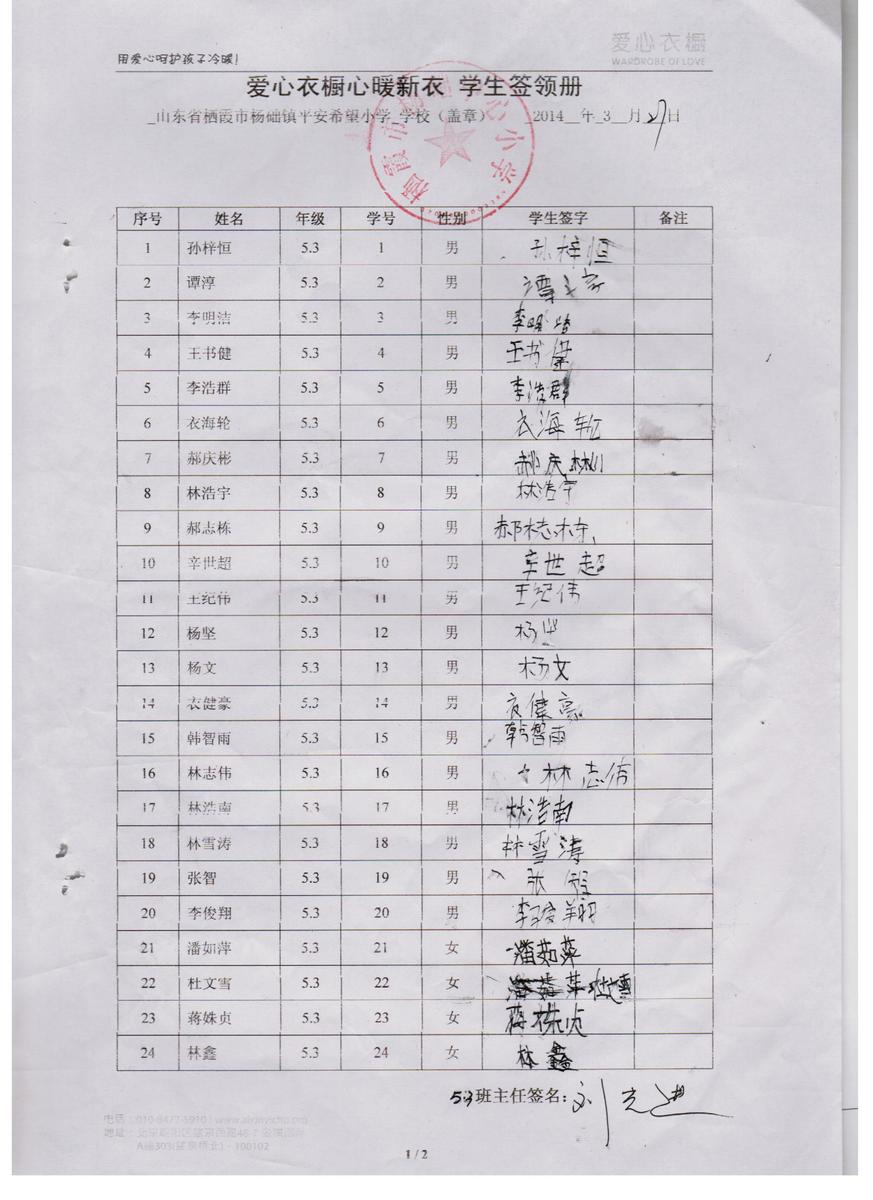 用爱心呵护孩子冷暖!
爱心衣橱
WARDROBE OF LOVE
爱心衣橱心暖新衣 学生签领册
_山东省栖霞市杨础镇平安希望小学_学校（盖章） 2014__年_3__月27日
序号 姓名 年级 学号 性别 学生签字 备注
1 孙梓恒 5.3 1 男 孙梓恒
2 谭淳 5.3 2 男 谭
3 李明洁 5.3 3 男 李明
4 王书健 5.3 4 男 王书健
5 李浩群 5.3 5 男 李浩群
6 衣海轮 5.3 6 男 衣海轮
7 郝庆彬 5.3 7 男 郝庆彬
8 林浩宇 5.3 8 男 林浩宇
9 郝志栋 5.3 9 男 郝志栋
10 辛世超 5.3 10 男 辛世超
11 王纪伟 5.3 11 男 王纪伟
12 杨坚 5.3 12 男 杨坚
13 杨文 5.3 13 男 杨文
14 衣健豪 5.3 14 男 衣健豪
15 韩智雨 5.3 15 男 韩智雨
16 林志伟 5.3 16 男 林志伟
17 林浩南 5.3 17 男 林浩南
18 林雪涛 5.3 18 男 林雪涛
19 张智 5.3 19 男 张
20 李俊翔 5.3 20 男 李俊翔
21 潘如萍 5.3 21 女 潘茹萍
22 杜文雪 5.3 22 女 杜文雪
23 蒋姝贞 5.3 23 女 蒋姝贞
24 林鑫 5.3 24 女 林鑫
53班主任签名：刘
电话：010-8477-5910 | www.aixinyichu.org
A座303(望京桥北) - 100102
1 / 2